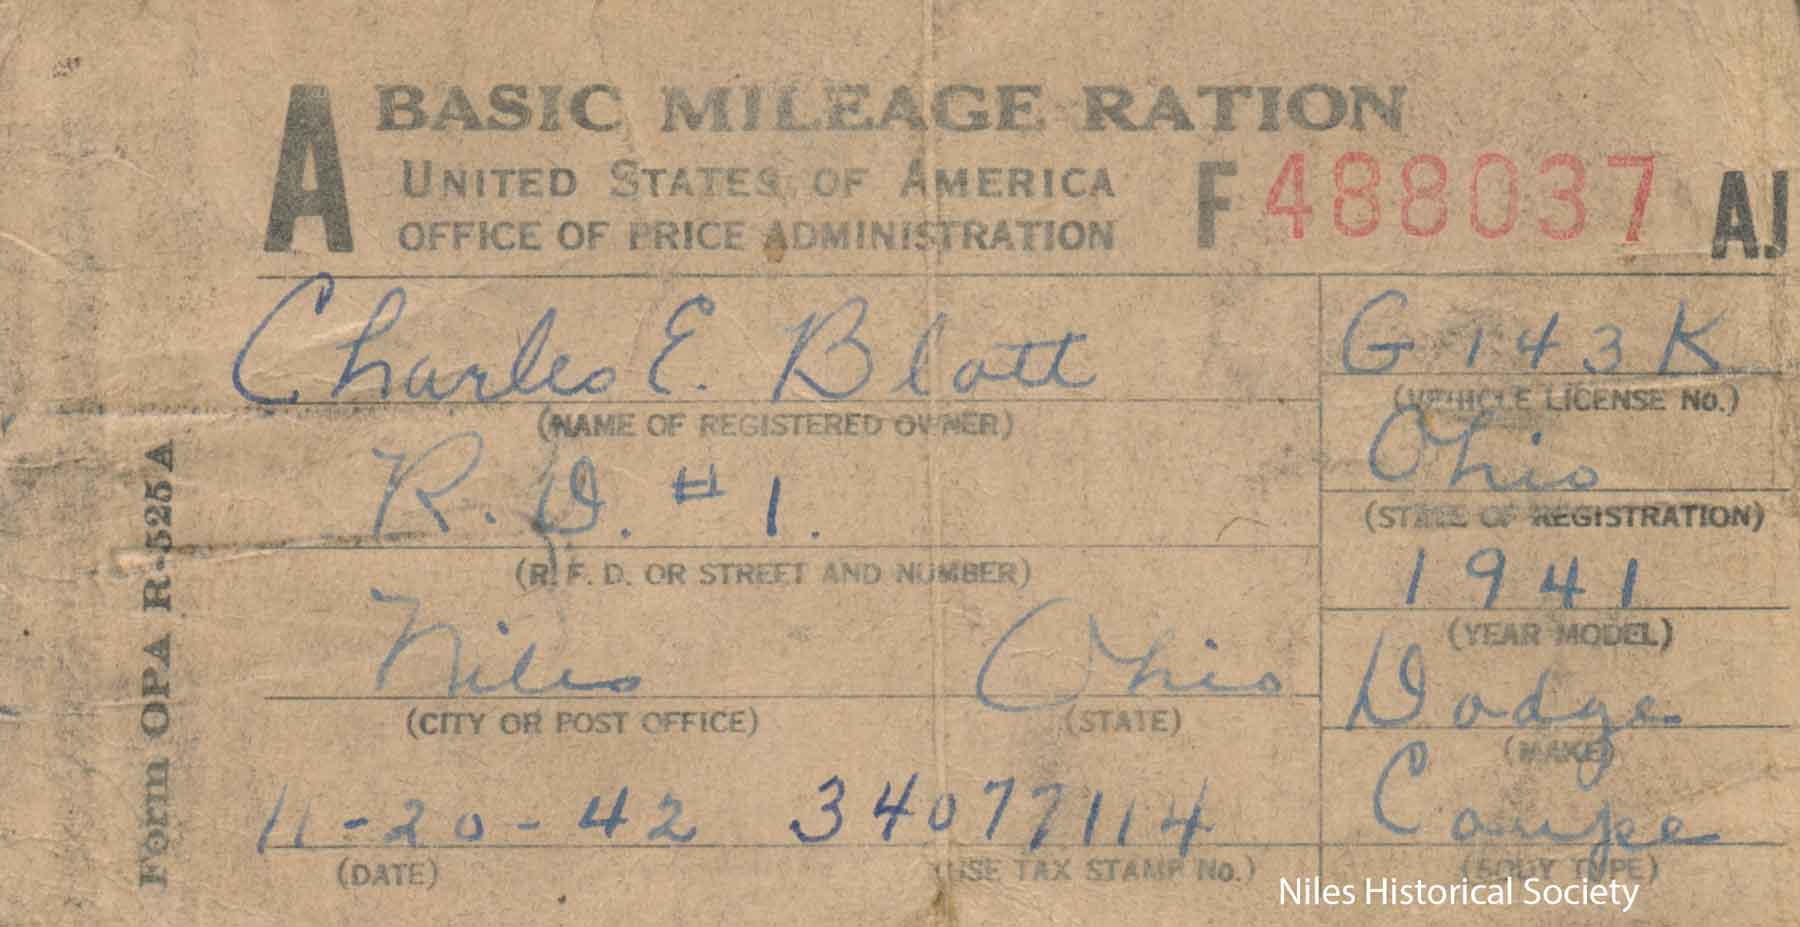 A BASIC MILEAGE RATION
UNITED STATES OF AMERICA
OFFICE OF PRICE ADMINISTRATION
F 488037 AJ
Charles E. Blott
(NAME OF REGISTERED OWNER)
R. D. #1.
(R. F. D. OR STREET AND NUMBER)
Niles Ohio
(CITY OR POST OFFICE) (STATE)
11-20-42 34077114
(DATE) (USE TAX STAMP No.)
G 143 K
(VEHICLE LICENSE No.)
Ohio
(STATE OF REGISTRATION)
1941
(YEAR MODEL)
Dodge
(MAKE)
Coupe
(BODY TYPE)
Form OPA R-525 A
Niles Historical Society